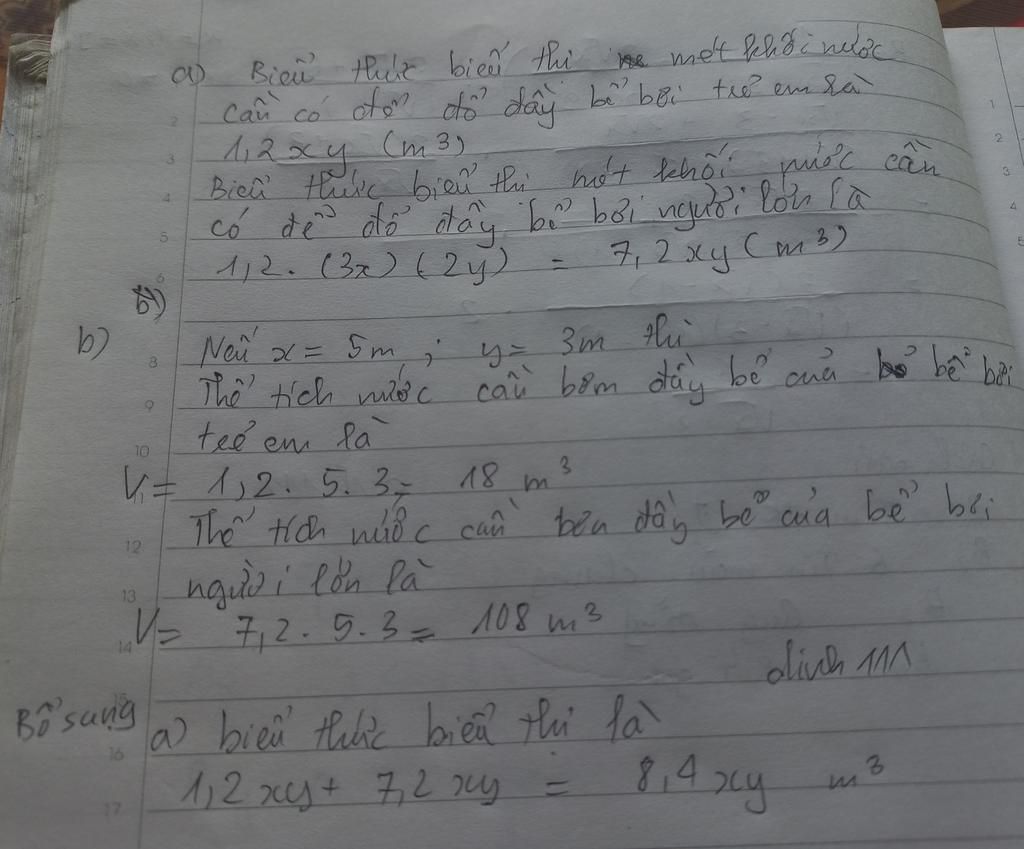 a) Biểu thức biểu thị mét khối nước
cần có để đổ đầy bể bơi trẻ em là
1,2xy (m³)
Biểu thức biểu thị mét khối nước cần
có để đổ đầy bể bơi người lớn là
1,2. (3x) (2y) = 7,2xy (m³)
b)
b) Nếu x = 5m ; y = 3m thì
Thể tích nước cần bơm đầy bể của bể bơi
trẻ em là
V = 1,2. 5. 3 = 18 m³
Thể tích nước cần bơm đầy bể của bể bơi
người lớn là
V = 7,2. 5. 3 = 108 m³
Bổ sung a) biểu thức biểu thị là
1,2xy + 7,2xy = 8,4xy m³